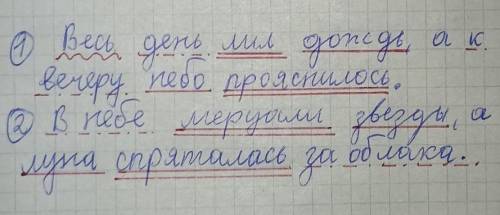 ① Весь день лил дождь, а к
вечеру небо прояснилось.
② В небе мерцали звезды, а
луна спряталась за облака.